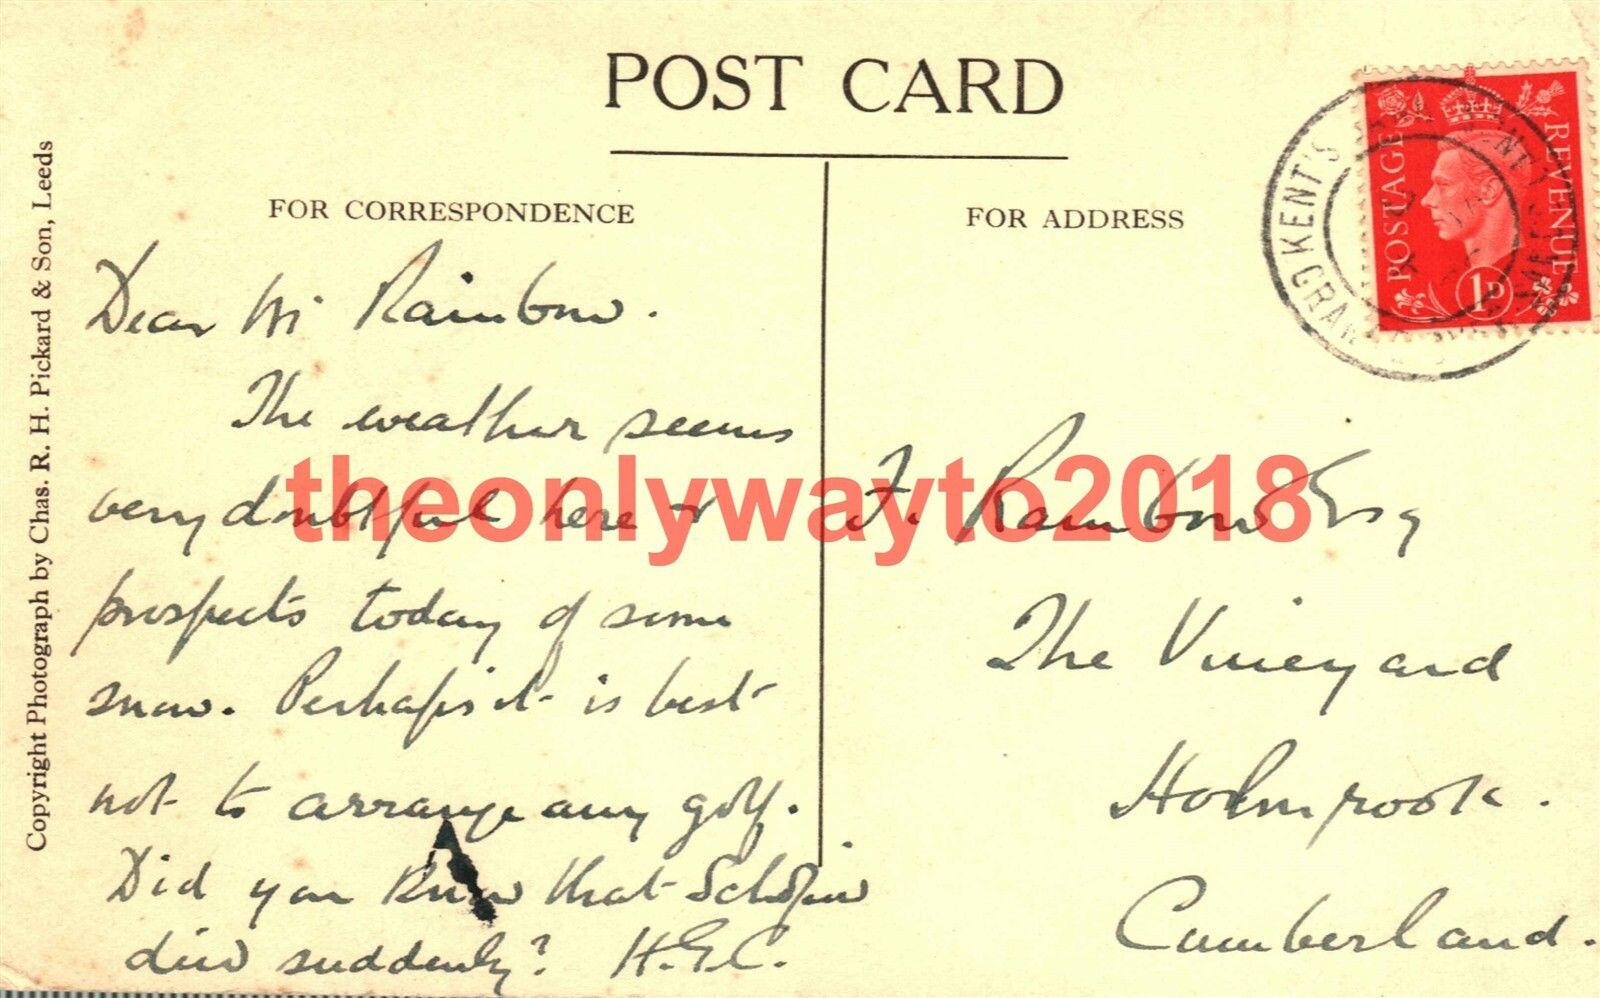 POST CARD
FOR CORRESPONDENCE
FOR ADDRESS
Copyright Photograph by Chas. R. H. Pickard & Son, Leeds
POSTAGE
REVENUE
1D
KENT'S BANK
GRANGE
Dear Mr Rainbow.
The weather seems
very doubtful here &
prospects today of some
snow. Perhaps it is best
not to arrange any golf.
Did you know that
died suddenly? H.G.C.
F. Rainbow Esq
The Vineyard
Holmrook.
Cumberland.
theonlywayto2018